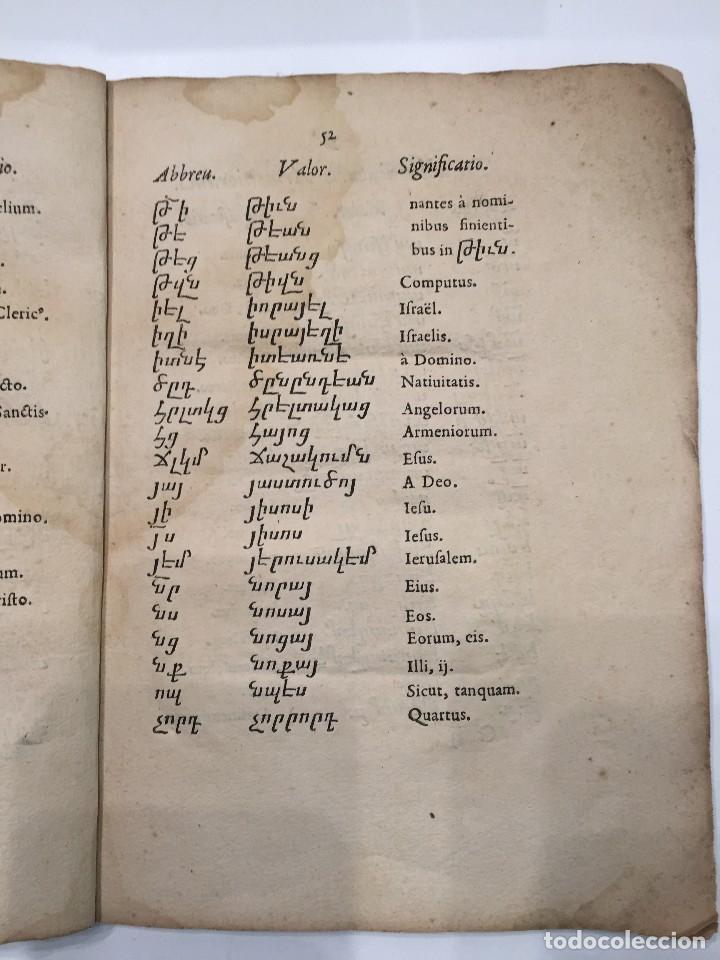 io.
elium.
Cleric⁹.
cto.
Sanctis-
r.
omino.
um.
risto.
52
Abbreu. Valor. Significatio.
թ՜ի թիւն nantes à nomi-
թէ թէան nibus finienti-
թէց թէանց bus in թիւն.
թվն թիվն Computus.
իէլ իսրայէլ Iſraël.
իղի իսրայէղի Iſraelis.
իտնէ իտեառնէ à Domino.
ծըդ ծընընդեան Natiuitatis.
հրլտկց հրելտակաց Angelorum.
հց հայոց Armeniorum.
ճլկմ ճաշակումն Eſus.
յայ յաստուծոյ A Deo.
յի յիսոսի Ieſu.
յս յիսոս Ieſus.
յէմ յէրուսակէմ Ieruſalem.
նր նորայ Eius.
նս նոսայ Eos.
նց նոցայ Eorum, eis.
նք նոքայ Illi, ij.
ոպ նպէս Sicut, tanquam.
չորդ չորրորդ Quartus.
todocoleccion
todocoleccion.net